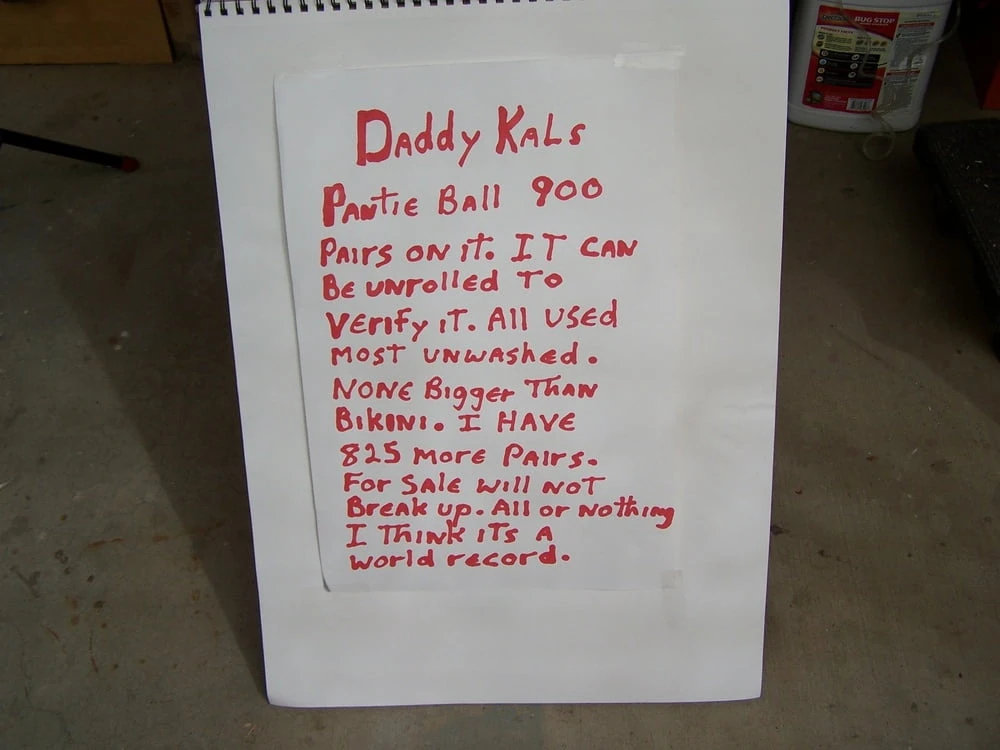 Daddy Kals
Pantie Ball 900
Pairs on it. IT can
Be unrolled To
verify iT. All used
most unwashed.
None Bigger Than
Bikini. I Have
825 more Pairs.
For Sale will not
Break up. All or nothing
I Think iTs A
world record.
BUG STOP